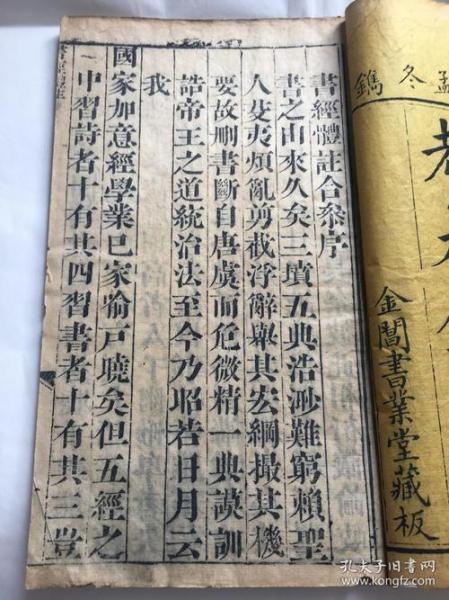 孟冬鐫
金閶書業堂藏板
書經體註合參序
書之由來久矣三墳五典浩渺難窮賴聖
人芟夷煩亂剪截浮辭舉其宏綱撮其機
要故刪書斷自唐虞而危微精一典謨訓
誥帝王之道統治法至今乃昭若日月云
我
國家加意經學業已家喻戶曉矣但五經之
中習詩者十有其四習書者十有其三豈
孔夫子旧书网